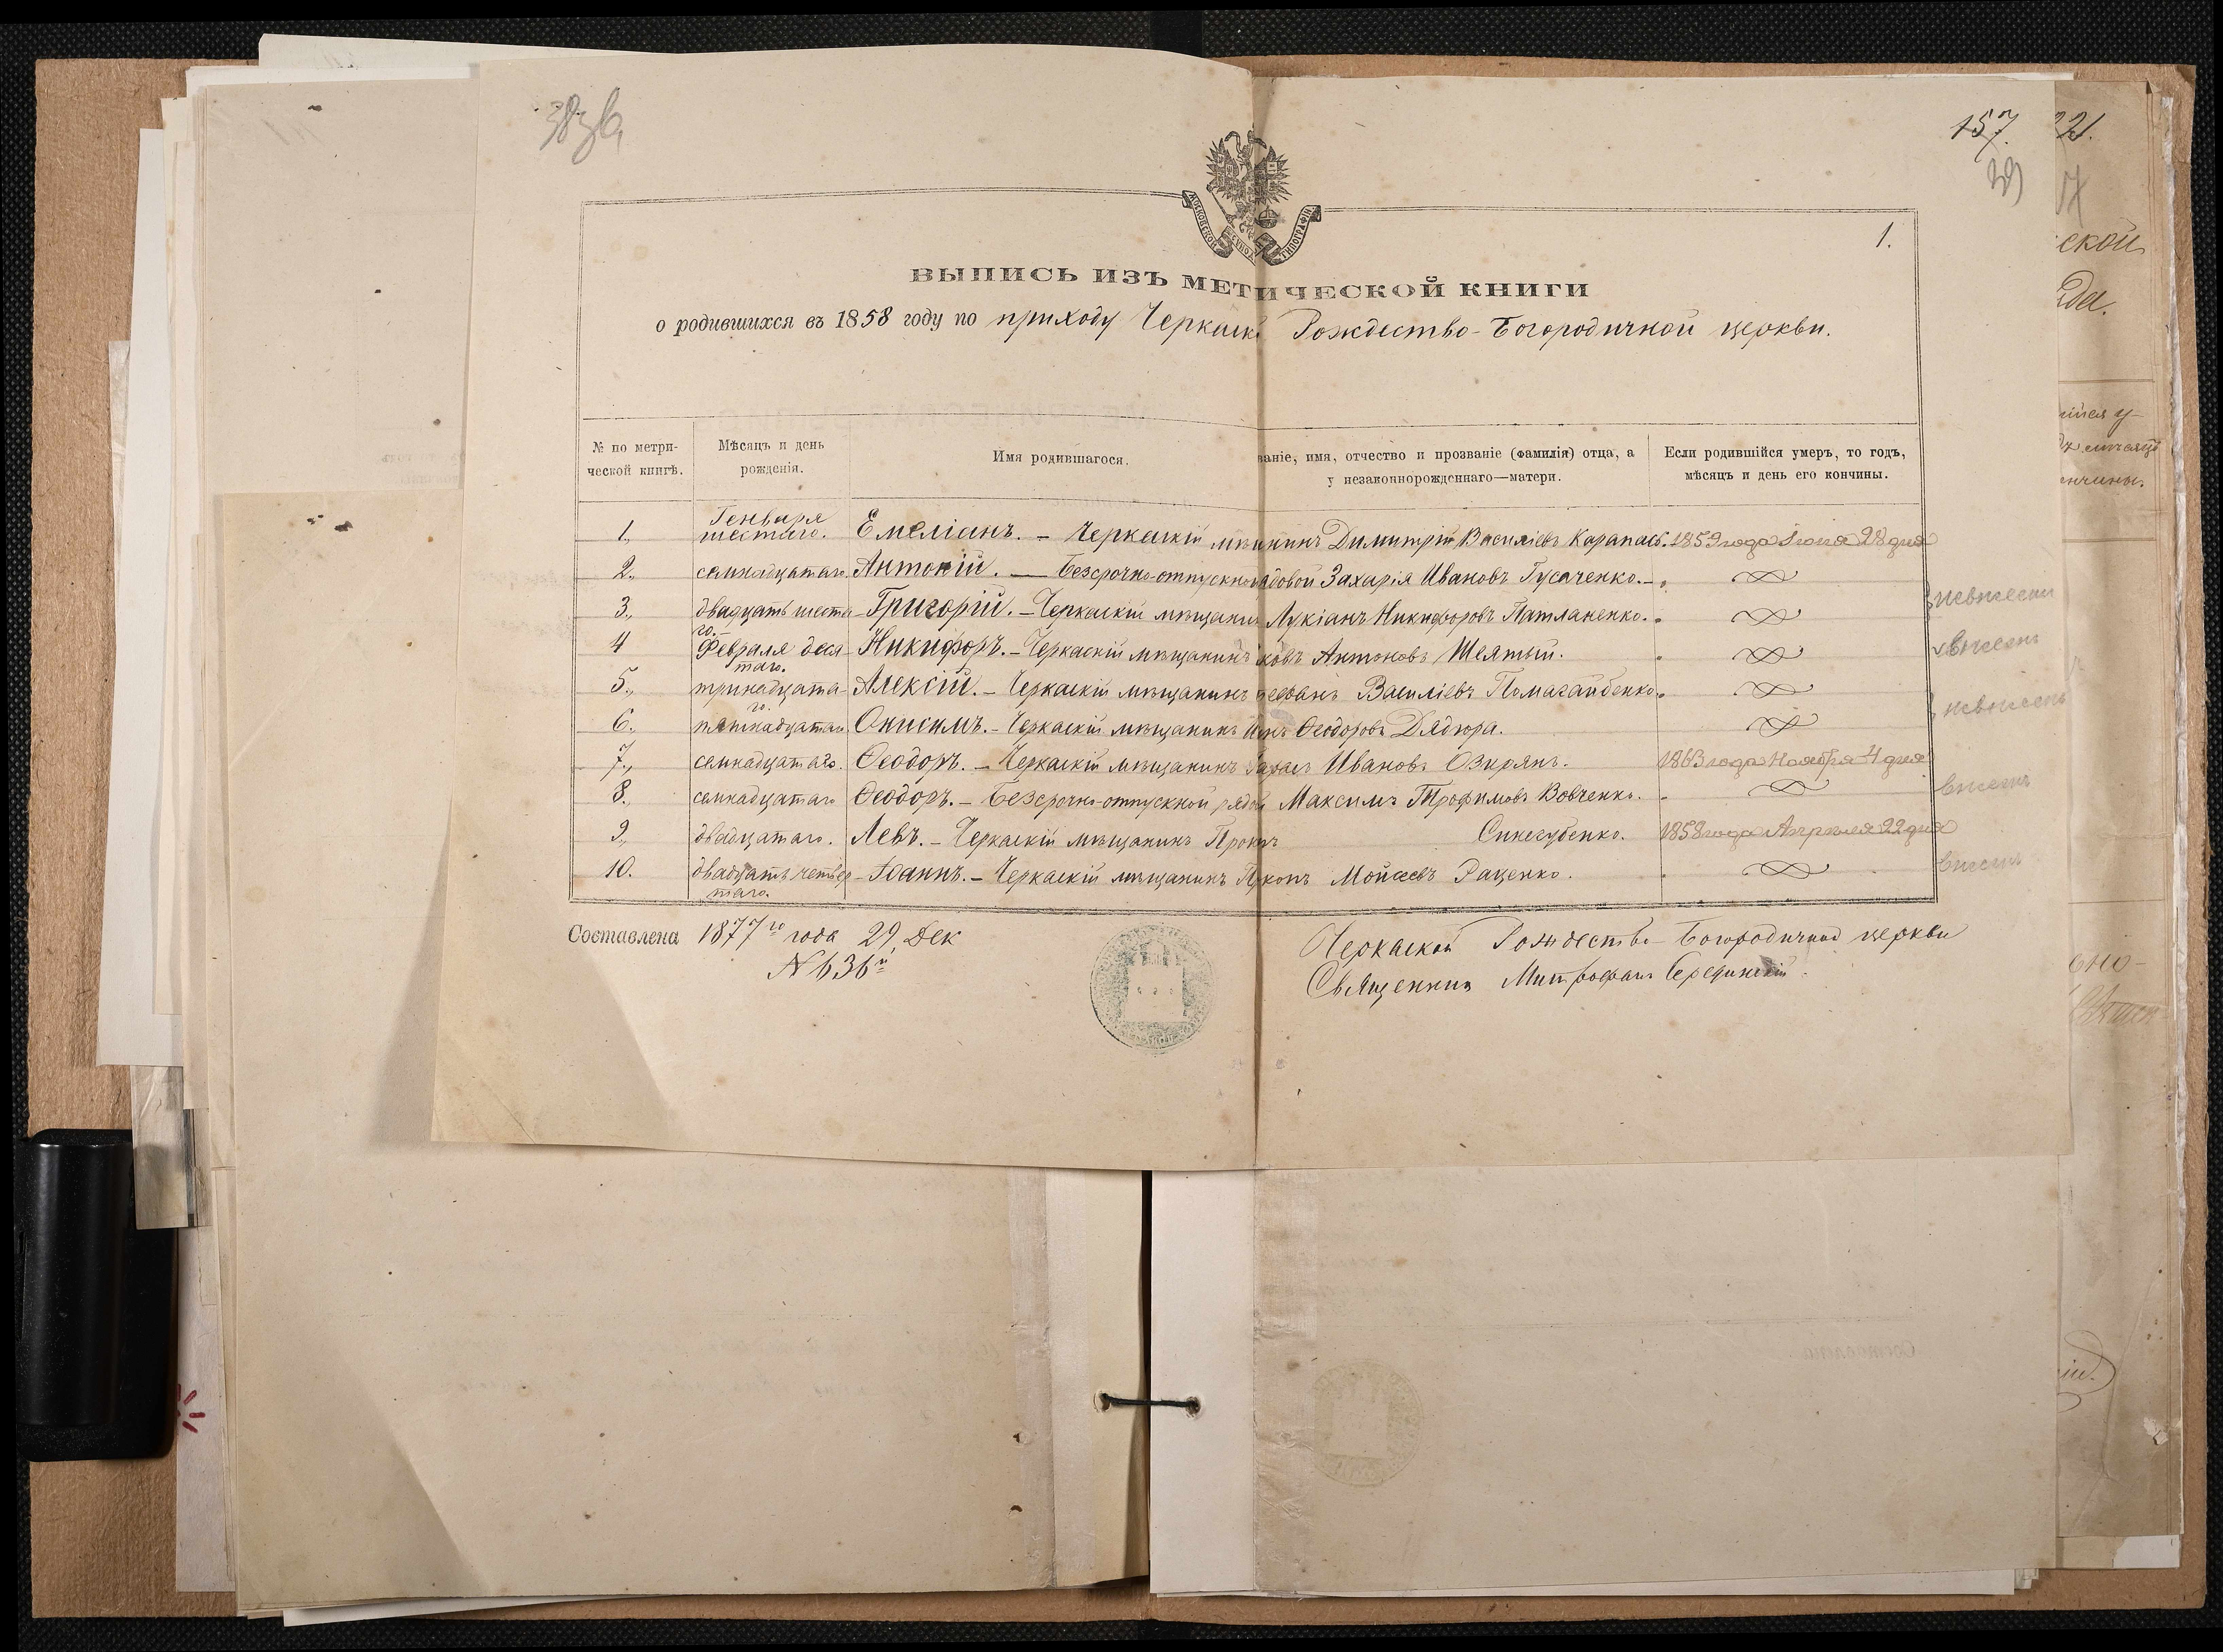 157.
221.
39
МОСКОВСКОЙ СѴНОД ТИПОГРАФІИ
1.
ВЫПИСЬ ИЗЪ МЕТИЧЕСКОЙ КНИГИ
о родившихся въ 1858 году по приходу Черкаск Рождество-Богородичной церкви.
№ по метрической книгѣ. Мѣсяцъ и день рожденія. Имя родившагося. ваніе, имя, отчество и прозваніе (фамилія) отца, а у незаконнорожденнаго—матери. Если родившійся умеръ, то годъ, мѣсяцъ и день его кончины.
1., Генваря шестаго. Емеліанъ. – Черкаскій мѣщанинъ Димитрій Василіевъ Карапасъ. 1859 года Іюня 28 дня
2., семнадцатаго. Антоній. — Безсрочно-отпускной рядовой Захарія Ивановъ Гусаченко. –
3., двадцать шестаго. Григорій. – Черкаскій мѣщанинъ Лукіанъ Никифоровъ Патланенко. невнесен
4 Февраля десятаго. Никифоръ. – Черкаскій мѣщанинъ Іаковъ Антоновъ Шеятый. внесенъ
5., тринадцатаго. Алексій. – Черкаскій мѣщанинъ Стефанъ Василіевъ Памагайбенко. невнесенъ
6. пятнадцатаго Онисимъ. – Черкаскій мѣщанинъ Ѳеодоровъ Дядюра.
7., семнадцатаго. Ѳеодоръ. – Черкаскій мѣщанинъ Тарасъ Ивановъ Озирянъ. 1863 года Ноября 4 дня
8. семнадцатаго Ѳеодоръ. – Безсрочно-отпускной рядов Максимъ Трофимовъ Вовченко. внесенъ
9., двадцатаго. Левъ. – Черкаскій мѣщанинъ Прокопъ Синегубенко. 1858 года Апрѣля 22 дня
10. двадцать четвертаго. Іоаннъ. – Черкаскій мѣщанинъ Прокопъ Мойсеевъ Раценко. внесенъ
Составлена 1877го года 29, Дек
N 636й
Черкаской Рождество-Богородичной церкви
Священникъ Митрофанъ Серединскій.